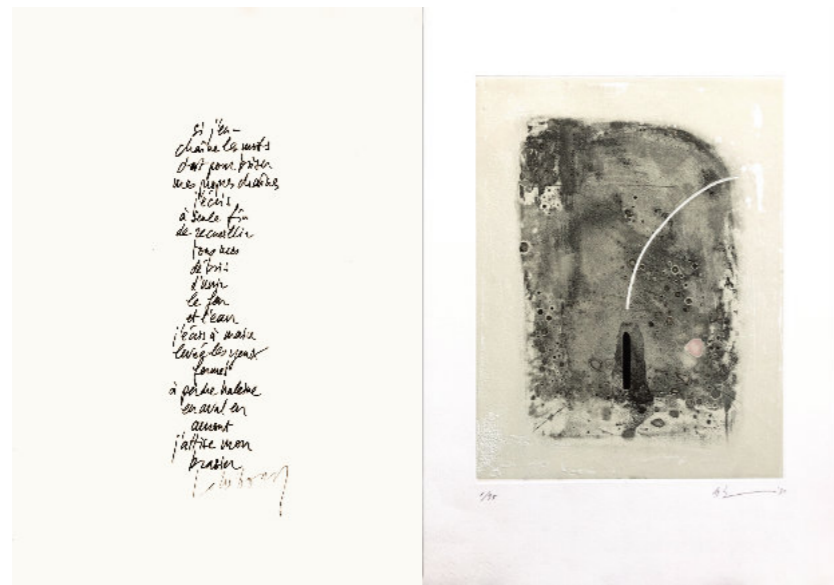 si j'en-
chaîne les mots
c'est pour briser
mes propres chaînes
j'écris
à seule fin
de recueillir
tous mes
débris
d'unir
le feu
et l'eau
j'écris à main
levée les yeux
fermés
à perdre haleine
en aval en
amont
j'attise mon
brasier